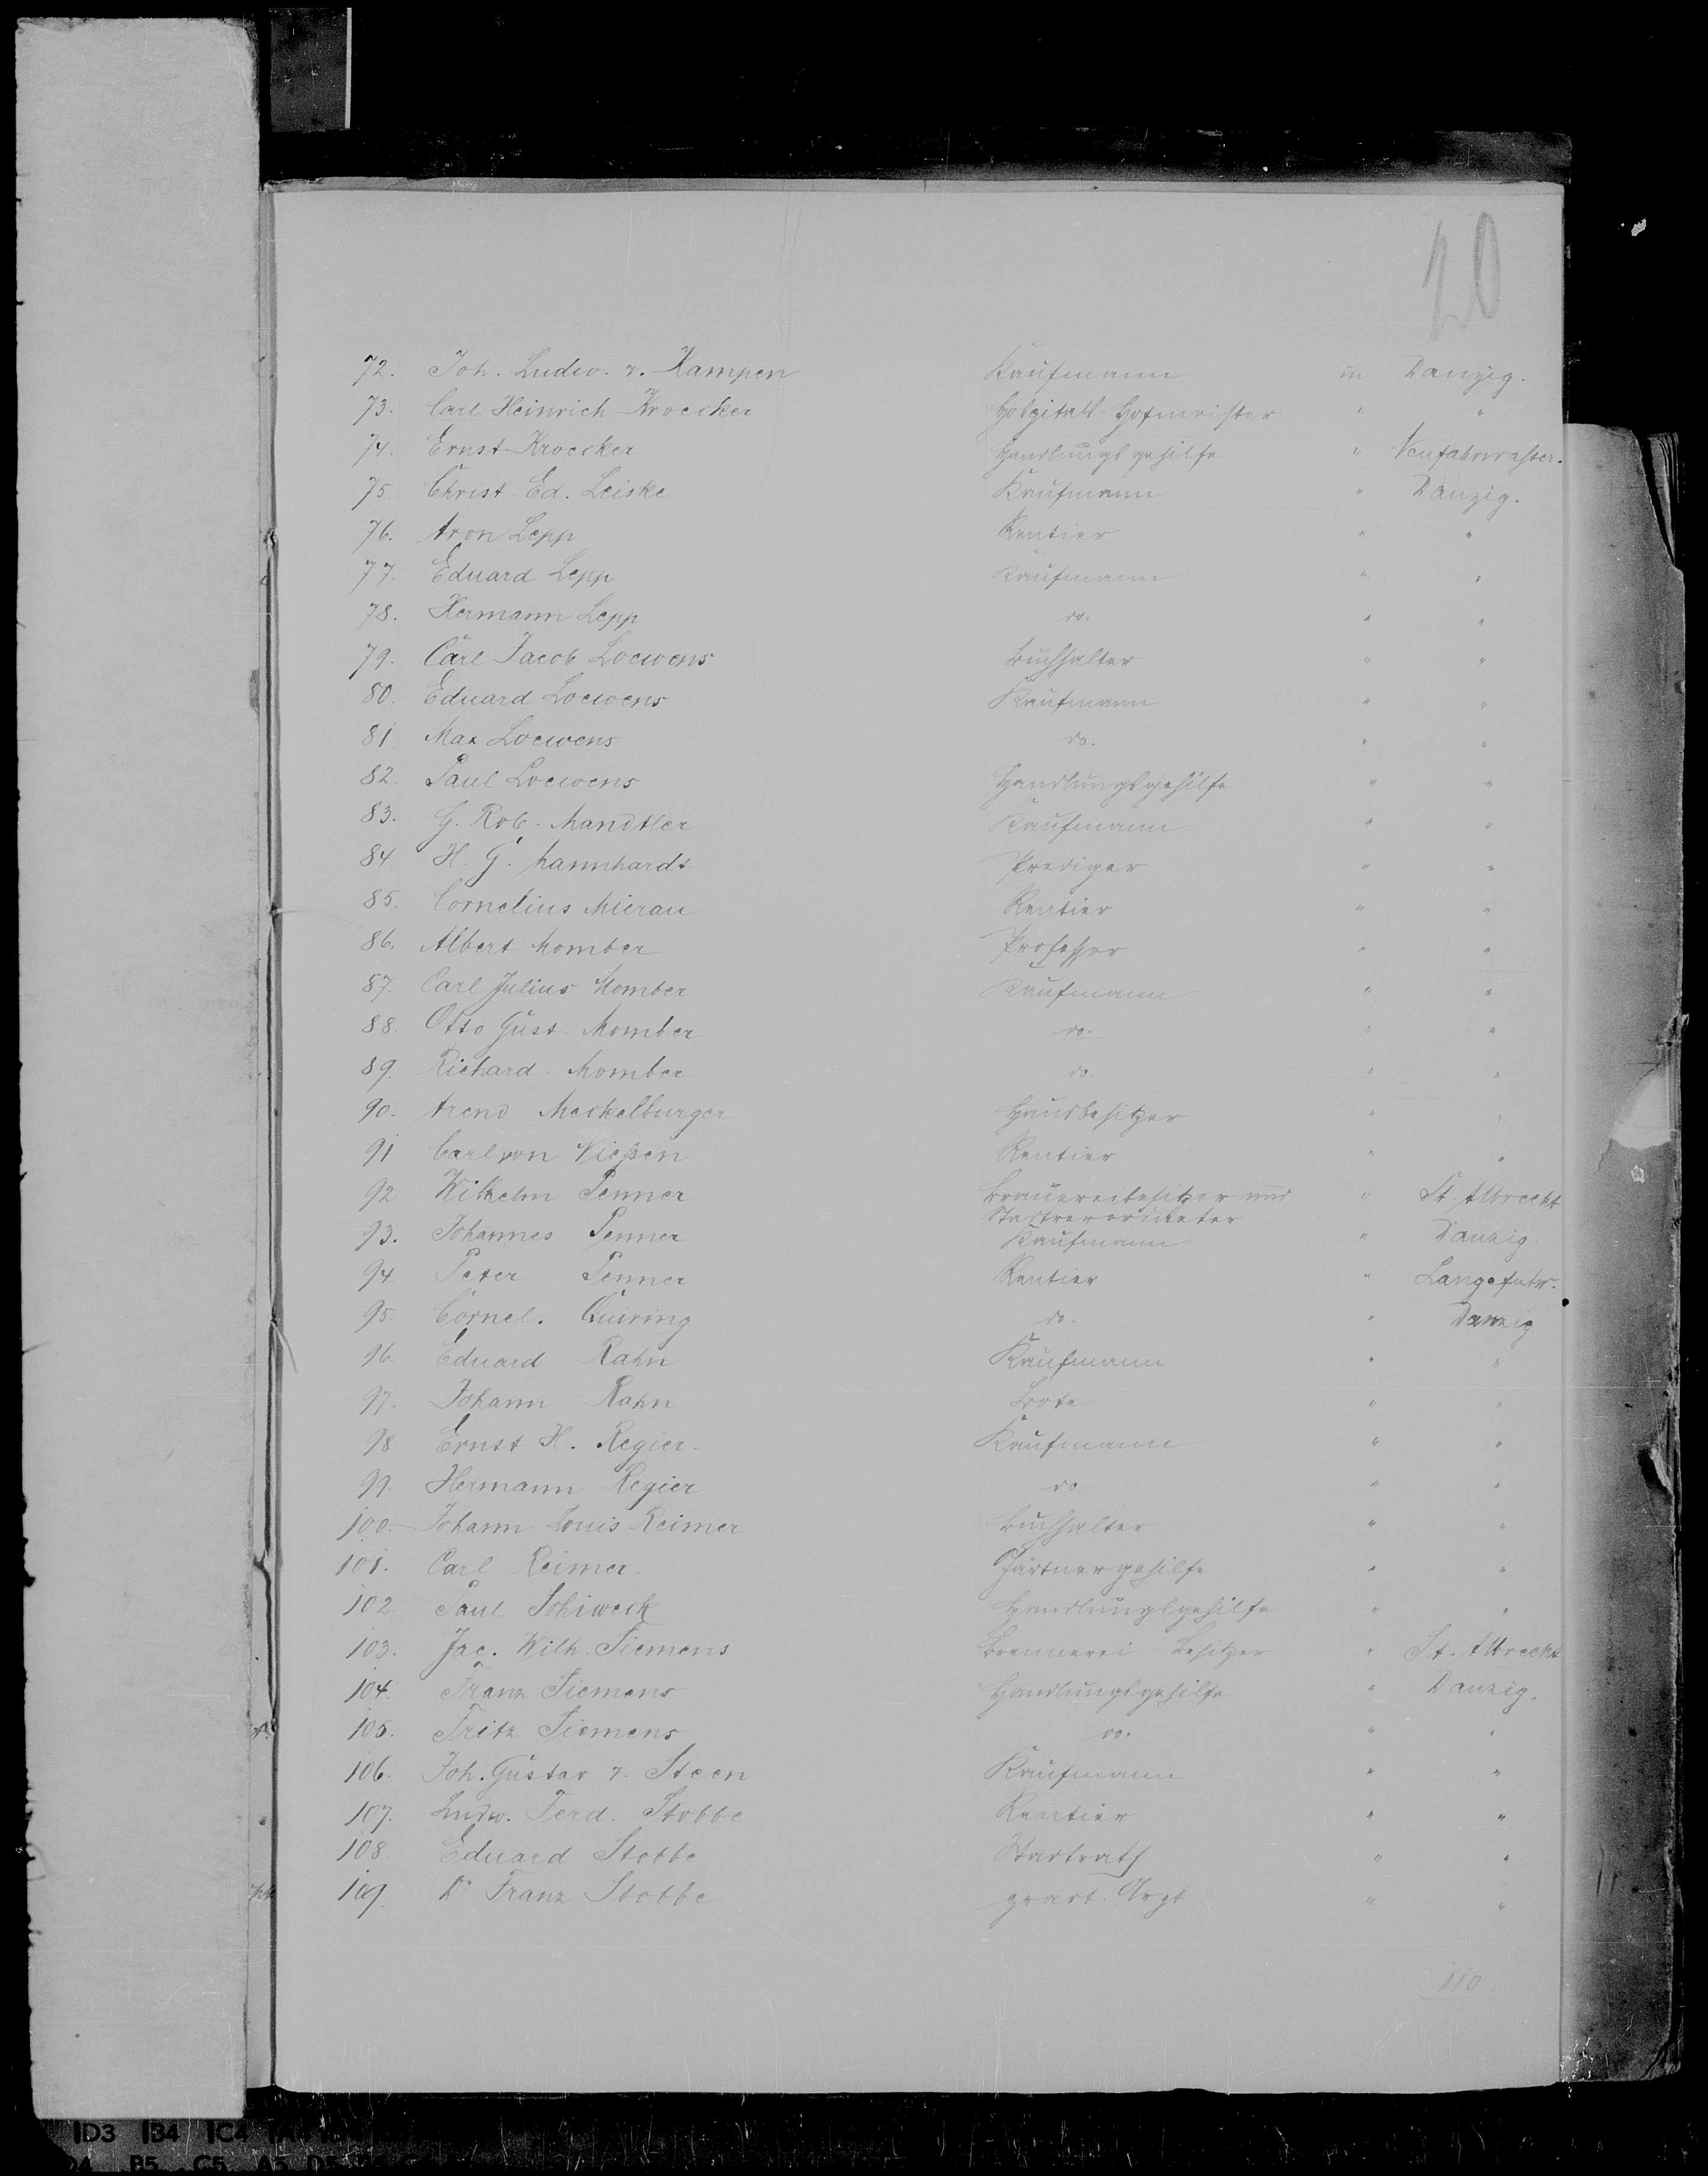 20
72. Joh. Ludw. v. Kampen Kaufmann in Danzig.
73. Carl Heinrich Kroecker Hospitals-Hofmeister " "
74. Ernst Kroecker Handlungsgehilfe " Neufahrwasser.
75. Christ. Ed. Leiske Kaufmann " Danzig.
76. Aron Lepp Rentier " "
77. Eduard Lepp Kaufmann " "
78. Hermann Lepp do. " "
79. Carl Jacob Loewens Buchhalter " "
80. Eduard Loewens Kaufmann " "
81 Max Loewens do. " "
82. Paul Loewens Handlungsgehilfe " "
83. G. Rob. Mandtler Kaufmann " "
84. H. G. Mannhardt Prediger " "
85. Cornelius Mierau Rentier " "
86. Albert Momber Professor " "
87. Carl Julius Momber Kaufmann " "
88. Otto Gust. Momber do. " "
89. Richard Momber do. " "
90. Arend Meckelburger Hausbesitzer " "
91 Carl von Rießen Rentier " "
92 Wilhelm Penner Brauereibesitzer und " St. Albrecht
Stadtverordneter
93. Johannes Penner Kaufmann " Danzig
94. Peter Penner Rentier " Langefuhr.
95. Cornel. Quiring do. " Danzig
96. Eduard Rahn Kaufmann " "
97. Johann Rahn Bote " "
98 Ernst H. Regier. Kaufmann " "
99. Hermann Regier do " "
100. Johann Louis Reimer Buchhalter " "
101. Carl Reimer. Gärtnergehilfe " "
102 Paul Schiweck Handlungsgehilfe " "
103. Jac. Wilh. Siemens Brennerei Besitzer " St. Albrecht
104. Franz Siemens Handlungsgehilfe " Danzig.
105. Fritz Siemens do. " "
106. Joh. Gustav v. Steen Kaufmann " "
107. Ludw. Ferd. Stobbe Rentier " "
108. Eduard Stobbe Stadtrath " "
109. Dr Franz Stobbe pract. Arzt " "
110
D3 B4 C4
B5 C5 A5 D5